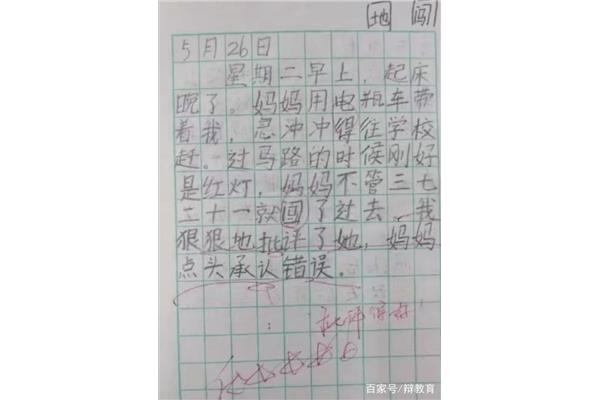 地 闯
5月26日
星期二早上，起床
晚了。妈妈用电瓶车带
着我，冲冲得往学校
赶。过马路的时候刚好
是红灯，妈妈不管三七
二十一就闯了过去。我
狠狠地批评了她，妈妈
点头承认错误。
批评得好！
百家号/辩教育